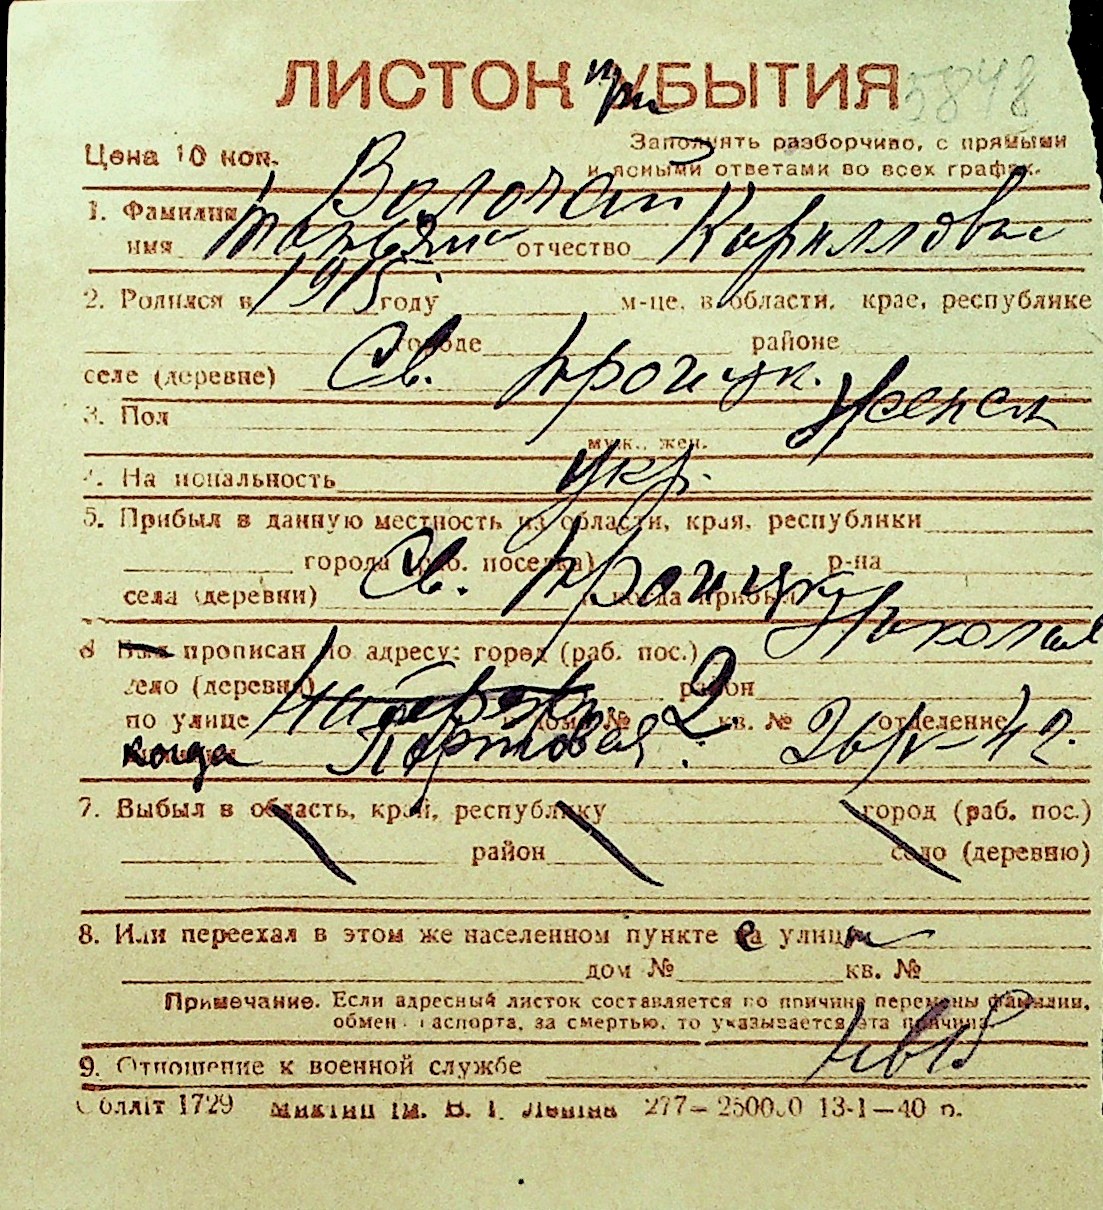 ЛИСТОК при УБЫТИЯ 5848
Цена 10 коп.
Заполнять разборчиво, с прямыми
и ясными ответами во всех графах.
1. Фамилия Волочай
имя Татьяна отчество Кирилловна
2. Родился в 1915 году м-це, в области, крае, республике
городе районе
селе (деревне) Св. Троицк.
3. Пол женск
муж., жен.
4. Национальность укр.
5. Прибыл в данную местность из области, края, республики
города (раб. поселка) р-на
села (деревни) Св. Троицк когда прибыл
8 Был прописан по адресу: город (раб. пос.) Николаев
село (деревня) район
по улице дом № 2. кв. № отделение
когда Портовая. 26/IV-42.
7. Выбыл в область, край, республику город (раб. пос.)
район село (деревню)
8. Или переехал в этом же населенном пункте на улицу
дом № кв. №
Примечание. Если адресный листок составляется по причине перемены фамилии,
обмен паспорта, за смертью, то указывается эта причина.
9. Отношение к военной службе
Облліт 1729 ім. В. І. Леніна 277— 13-1—40 р.